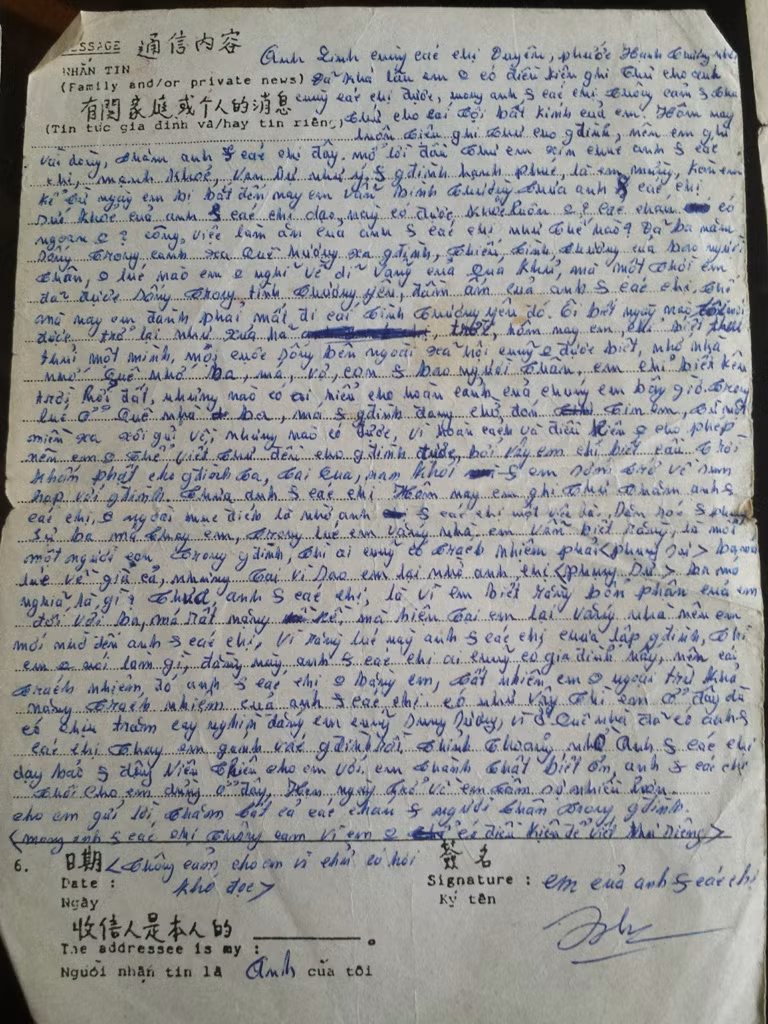 ESSAGE 通信内容
NHẮN TIN
(Family and/or private news)
有関家庭或个人的消息
(Tin tức gia đình và/hay tin riêng)
Anh Linh cùng các chị Duyên, phước Hạnh thương nhớ
Đã khá lâu em 0 có điều kiện ghi thư cho anh
cùng các chị được, mong anh & các chị thông cảm & tha
thứ cho cái tội bất kính của em. Hôm nay
ghi thư cho gđình, nên em ghi
vài dòng, thăm anh & các chị đây. mở lời đầu thư em xin chúc anh & các
chị, mạnh khoẻ, vạn sự như ý, & gđình hạnh phúc, là em mừng, còn em
kể từ ngày em bị bắt đến nay em vẫn bình thường thưa anh & các chị
sức khoẻ của anh & các chị dạo này có được khoẻ luôn 0? các cháu có
ngoan 0? công việc làm ăn của anh & các chị như thế nào? Đã ba năm
sống trong cảnh xa quê hương xa gđình, thiếu tình thương của bao người
thân, 0 lúc nào em 0 nghĩ về dĩ vãng của quá khứ, mà một thời em
đã được sống trong tình thương yêu, đầm ấm của anh & các chị, thế
mà nay em đành phải mất đi cái tình thương yêu đó. Ôi biết ngày nào mới
được trở lại như xưa, hôm nay em chỉ biết
thui thủi một mình, mọi cuộc sống bên ngoài xã hội cũng 0 được biết, nhớ nhà
nhớ quê nhớ ba, má, vợ, con & bao người thân, em chỉ biết kêu
trời hỏi đất, nhưng nào có ai hiểu cho hoàn cảnh của chúng em bây giờ. Trong
lúc ở quê nhà ba, má & gđình đang chờ đón tim em, từ một
miền xa xôi gửi về, nhưng nào có được, vì hoàn cảnh và điều kiện 0 cho phép
nên em 0 thể viết thư đều cho gđình được, bởi vậy em chỉ biết cầu trời
khấn phật cho gđình ta, tai qua, nạn khỏi & em sớm trở về sum
họp với gđình. Thưa anh & các chị Hôm nay em ghi thư thăm anh &
các chị, 0 ngoài mục đích là nhờ anh & các chị một việc là.
ba má thay em, trong lúc em vắng nhà, em vẫn biết rằng, là một
một người con trong gđình, thì ai cũng có trách nhiệm phải <phụng sự> ba má
lúc về già cả, nhưng tại vì sao em lại nhờ anh, chị <phụng sự> ba má
nghĩa là gì? Thưa, anh & các chị, là vì em biết rằng bổn phận của em
đối với ba, má rất nặng nề, mà hiện tại em lại vắng nhà nên em
mới nhờ đến anh & các chị, vì rằng lúc này anh & các chị chưa lập gđình, thì
em 0 nói làm gì, đằng này anh & các chị ai cũng có gia đình này, nên cái
trách nhiệm đó anh & các chị 0 bằng em, tất nhiên em 0 ngoài trừ khả
năng trách nhiệm của anh & các chị. có như vậy thì em ở đây dù
có chịu trăm cay nghìn đắng em cũng sung sướng, vì ở quê nhà đã có anh &
các chị thay em gánh vác gđình rồi, thỉnh thoảng nhờ Anh & các chị
dạy bảo & động viên cho em với, em thành thật biết ơn, anh & các chị
thôi cho em dừng ở đây, Hẹn ngày trở về em tâm sự nhiều hơn.
cho em gửi lời, thăm tất cả các cháu & người thân trong gđình.
<mong anh & các chị thông cảm vì em 0 có điều kiện để viết thư riêng>
6. 日期 <thông cảm cho em vì chữ có hơi
khó đọc>
Date :
Ngày
簽名
Signature : em của anh & các chị
Ký tên
收信人是本人的 ________。
The addressee is my :
Người nhận tin là Anh của tôi